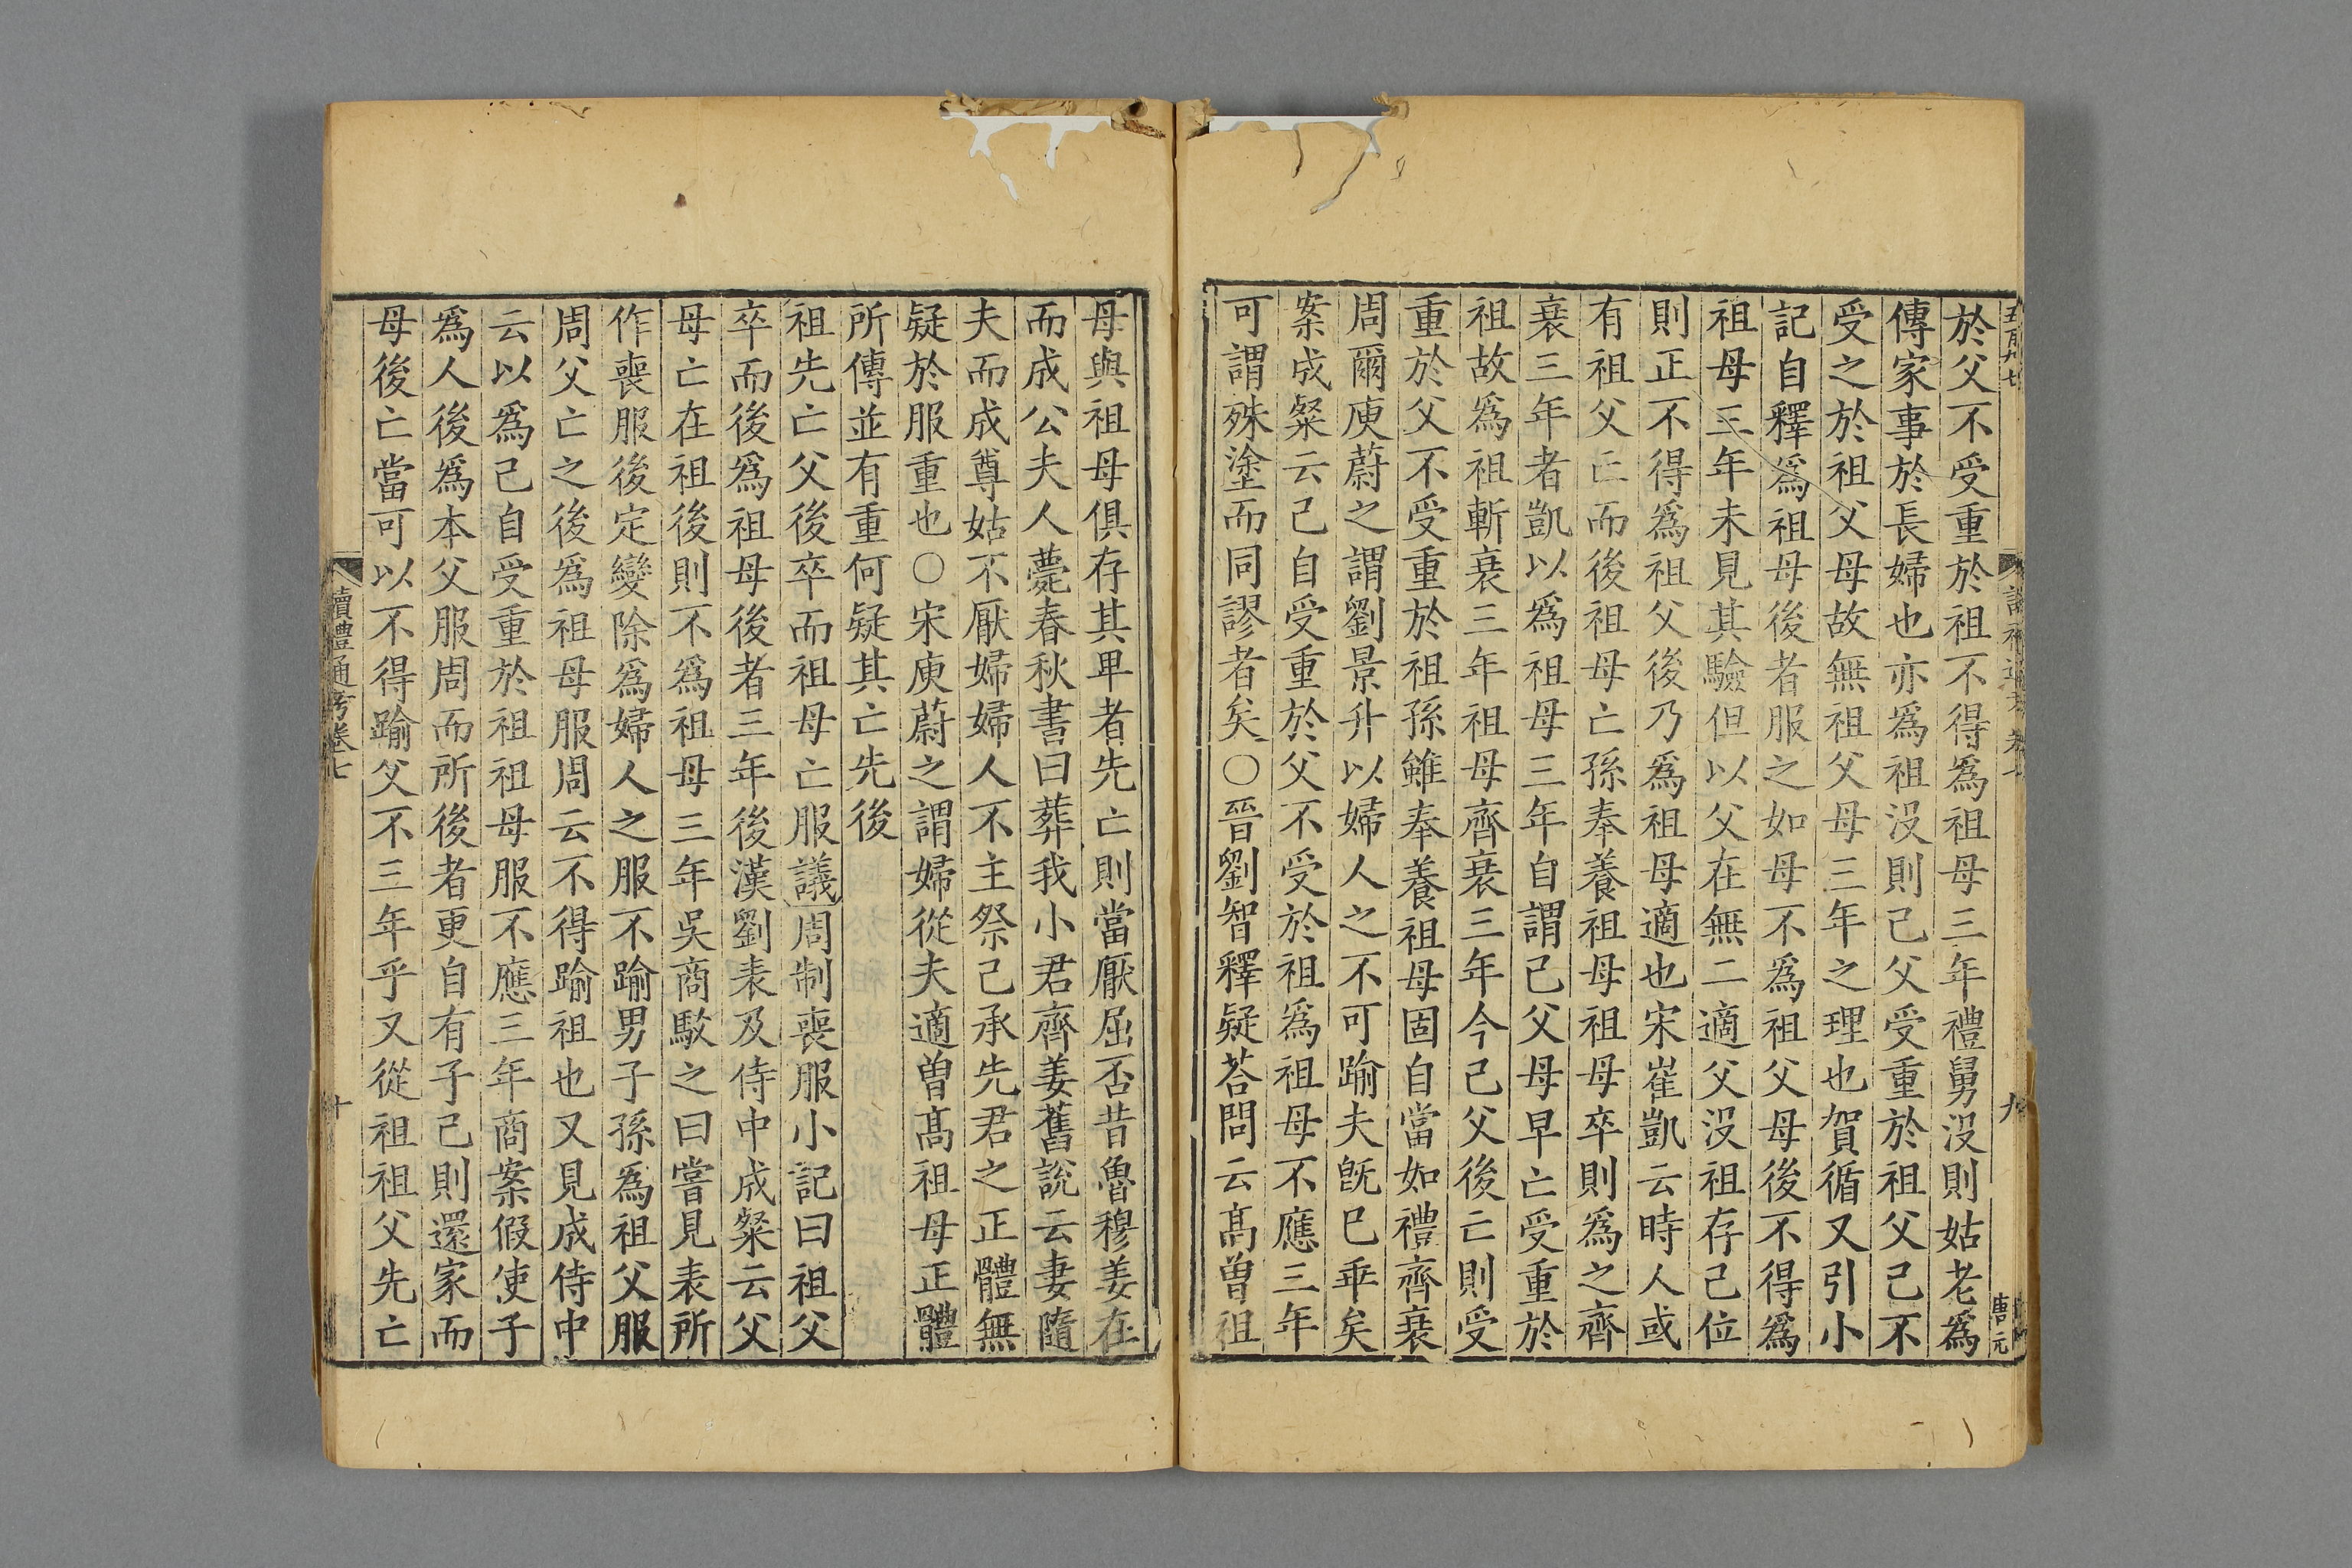 於父不受重於祖不得爲祖母三年禮舅沒則姑老爲
傳家事於長婦也亦爲祖沒則己父受重於祖父己不
受之於祖父母故無祖父母三年之理也賀循又引小
記自釋爲祖母後者服之如母不爲祖父母後不得爲
祖母三年未見其驗但以父在無二適父沒祖存己位
則正不得爲祖父後乃爲祖母適也宋崔凱云時人或
有祖父亡而後祖母亡孫奉養祖母祖母卒則爲之齊
衰三年者凱以爲祖母三年自謂己父母早亡受重於
祖故爲祖斬衰三年祖母齊衰三年今己父後亡則受
重於父不受重於祖孫雖奉養祖母固自當如禮齊衰
周爾庾蔚之謂劉景升以婦人之不可踰夫旣已乖矣
案成粲云己自受重於父不受於祖爲祖母不應三年
可謂殊塗而同謬者矣○晉劉智釋疑荅問云高曾祖
母與祖母俱存其卑者先亡則當厭屈否昔魯穆姜在
而成公夫人薨春秋書曰葬我小君齊姜舊說云妻隨
夫而成尊姑不厭婦婦人不主祭己承先君之正體無
疑於服重也○宋庾蔚之謂婦從夫適曾高祖母正體
所傳並有重何疑其亡先後
祖先亡父後卒而祖母亡服議周制喪服小記曰祖父
卒而後爲祖母後者三年後漢劉表及侍中成粲云父
母亡在祖後則不爲祖母三年吳商駮之曰嘗見表所
作喪服後定變除爲婦人之服不踰男子孫爲祖父服
周父亡之後爲祖母服周云不得踰祖也又見成侍中
云以爲己自受重於祖祖母服不應三年商案假使子
爲人後爲本父服周而所後者更自有子己則還家而
母後亡當可以不得踰父不三年乎又從祖祖父先亡
讀禮通考卷七
十
九
唐元